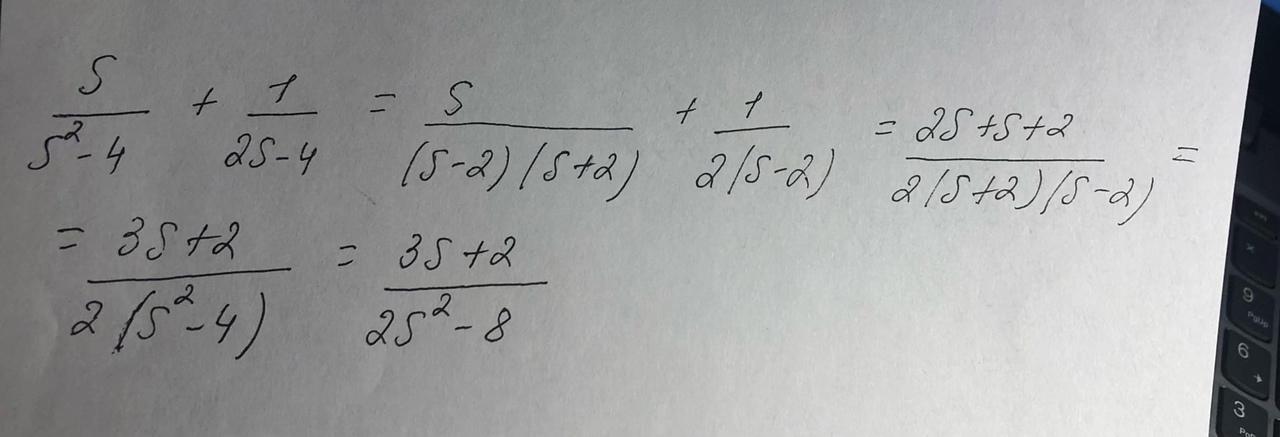 S/(S²-4) + 1/(2S-4) = S/((S-2)(S+2)) + 1/(2(S-2)) = (2S+S+2)/(2(S+2)(S-2)) =
= (3S+2)/(2(S²-4)) = (3S+2)/(2S²-8)
9
PgUp
6
3